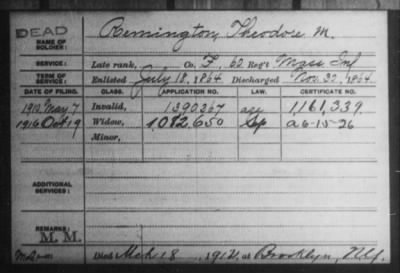 DEAD
NAME OF SOLDIER: Remington, Theodore M.
SERVICE: Late rank, Co. F, 60 Reg't Mass Inf
TERM OF SERVICE: Enlisted July 18, 1864 Discharged Nov. 30, 1864
DATE OF FILING. CLASS. APPLICATION NO. LAW. CERTIFICATE NO.
1910 May 7 Invalid, 1390367 age 1161,339
1916 Oct 19 Widow, 1,082,650 a 6-15-26
Minor,
ADDITIONAL SERVICES:
REMARKS:
M. M.
Died Mch 18, 1912, at Brooklyn, N.Y.